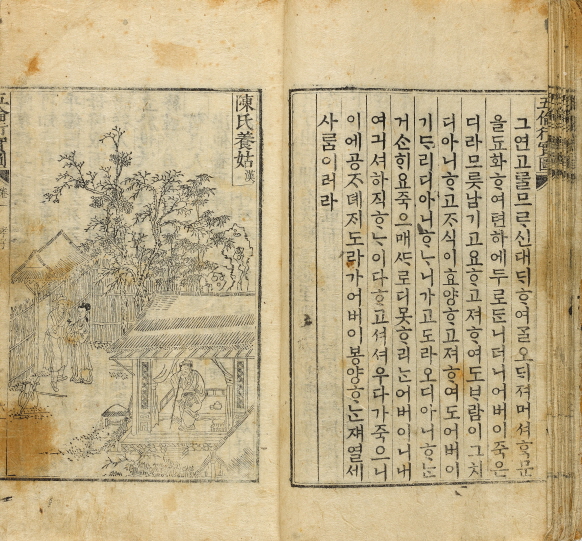 五倫行實圖
그연고ᄅᆞᆯ므ᄅᆞ신대ᄃᆡᄒᆞ여ᄀᆞᆯ오ᄃᆡ져머셔ᄒᆞᆨ문
을됴화ᄒᆞ여텬하에두로ᄃᆞᆫ니더니어버이죽은
디라므릇남기고요ᄒᆞ고져ᄒᆞ여도ᄇᆞ람이그치
디아니ᄒᆞ고ᄌᆞ식이효양ᄒᆞ고져ᄒᆞ여도어버이
기ᄃᆞ리디아니ᄒᆞᄂᆞ니가고도라오디아니ᄒᆞᄂᆞᆫ
거슨ᄒᆡ요죽으매ᄯᆞ로디못ᄒᆞ리ᄂᆞᆫ어버이니내
여긔셔하직ᄒᆞᄂᆞ이다ᄒᆞ고셔셔우다가죽으니
이에공ᄌᆞ뎨ᄌᆞ도라가어버이봉양ᄒᆞᄂᆞᆫ쟤열세
사ᄅᆞᆷ이러라
陳氏養姑 漢
五倫行實圖